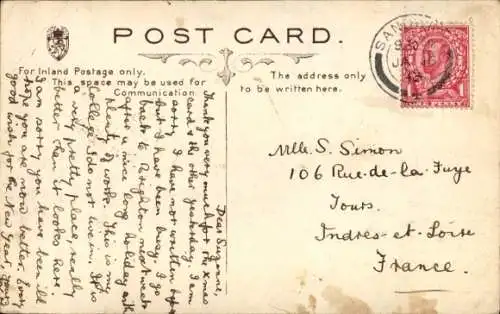 POST CARD.
For Inland Postage only.
This space may be used for
Communication.
The address only
to be written here.
Dear Suzanne,
Thank you very much for the Xmas
card & the other yesterday. I am
sorry I have not written before
but I have been busy. I go
back to Brighton next week
after a nice long holiday with
plenty of work. This is my
College. I do not live in. It is
a very pretty place, really
better than it looks here.
I am sorry you have been ill
hope you are now better. Every
good wish for the New Year,
Mlle. S. Simon
106 Rue-de-la-Fuye
Tours.
Indres-et-Loire
France.
ONE PENNY